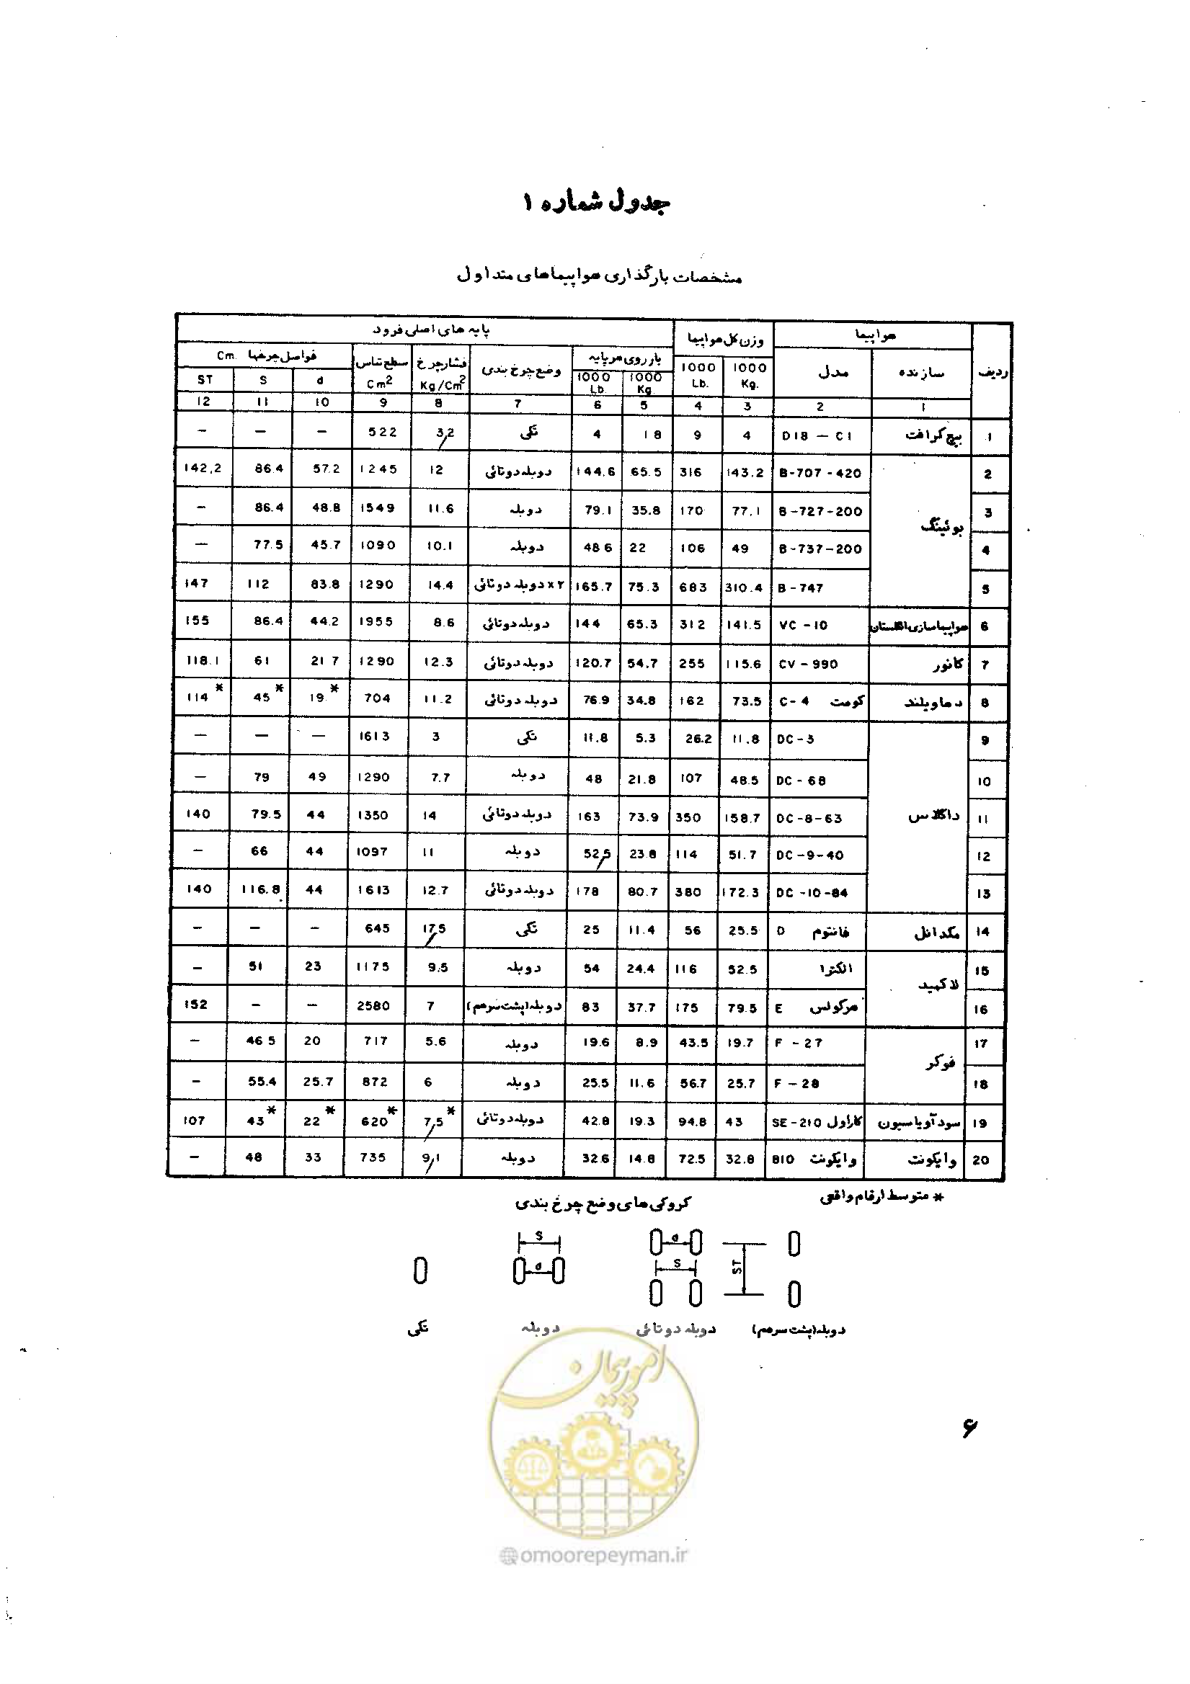 جدول شماره ۱
مشخصات بارگذاری هواپیماهای متداول
ردیف هواپیما وزن کل هواپیما پایه های اصلی فرود
سازنده مدل 1000 Kg. 1000 Lb. بار روی هر پایه 1000 Kg 1000 Lb وضع چرخ بندی فشار چرخ Kg/Cm2 سطح تماس Cm2 فواصل چرخها Cm. d S ST
1 2 3 4 5 6 7 8 9 10 11 12
1 بیچ کرافت D18 – C1 4 9 18 4 تکی 3,2 522 – – –
2 بوئینگ B-707-420 143.2 316 65.5 144.6 دوبله دوتائی 12 1245 57.2 86.4 142,2
3 B-727-200 77.1 170 35.8 79.1 دوبله 11.6 1549 48.8 86.4 –
4 B-737-200 49 106 22 48 6 دوبله 10.1 1090 45.7 77.5 –
5 B-747 310.4 683 75.3 165.7 دوبله دوتائی x۲ 14.4 1290 83.8 112 147
6 هواپیماسازی انگلستان VC-10 141.5 312 65.3 144 دوبله دوتائی 8.6 1955 44.2 86.4 155
7 کانور CV-990 115.6 255 54.7 120.7 دوبله دوتائی 12.3 1290 21 7 61 118.1
8 دهاویلند کومت C-4 73.5 162 34.8 76.9 دوبله دوتائی 11.2 704 19* 45* 114*
9 داگلاس DC-3 11.8 26.2 5.3 11.8 تکی 3 1613 – – –
10 DC-6B 48.5 107 21.8 48 دوبله 7.7 1290 49 79 –
11 DC-8-63 158.7 350 73.9 163 دوبله دوتائی 14 1350 44 79.5 140
12 DC-9-40 51.7 114 23.8 52,5 دوبله 11 1097 44 66 –
13 DC-10-84 172.3 380 80.7 178 دوبله دوتائی 12.7 1613 44 116.8 140
14 مکدانل فانتوم D 25.5 56 11.4 25 تکی 17,5 645 – – –
15 لاکهید الکترا 52.5 116 24.4 54 دوبله 9.5 1175 23 51 –
16 هرکولس E 79.5 175 37.7 83 دوبله (پشت سرهم) 7 2580 – – 152
17 فوکر F-27 19.7 43.5 8.9 19.6 دوبله 5.6 717 20 46 5 –
18 F-28 25.7 56.7 11.6 25.5 دوبله 6 872 25.7 55.4 –
19 سود آویاسیون کاراول SE-210 43 94.8 19.3 42.8 دوبله دوتائی 7,5* 620* 22* 43* 107
20 وایکونت وایکونت 810 32.8 72.5 14.8 32.6 دوبله 9,1 735 33 48 –
* متوسط ارقام واقعی
کروکی های وضع چرخ بندی
ST d S S d
دوبله (پشت سرهم) دوبله دوتائی دوبله تکی
امور پیمان
۶
@omoorepeyman.ir